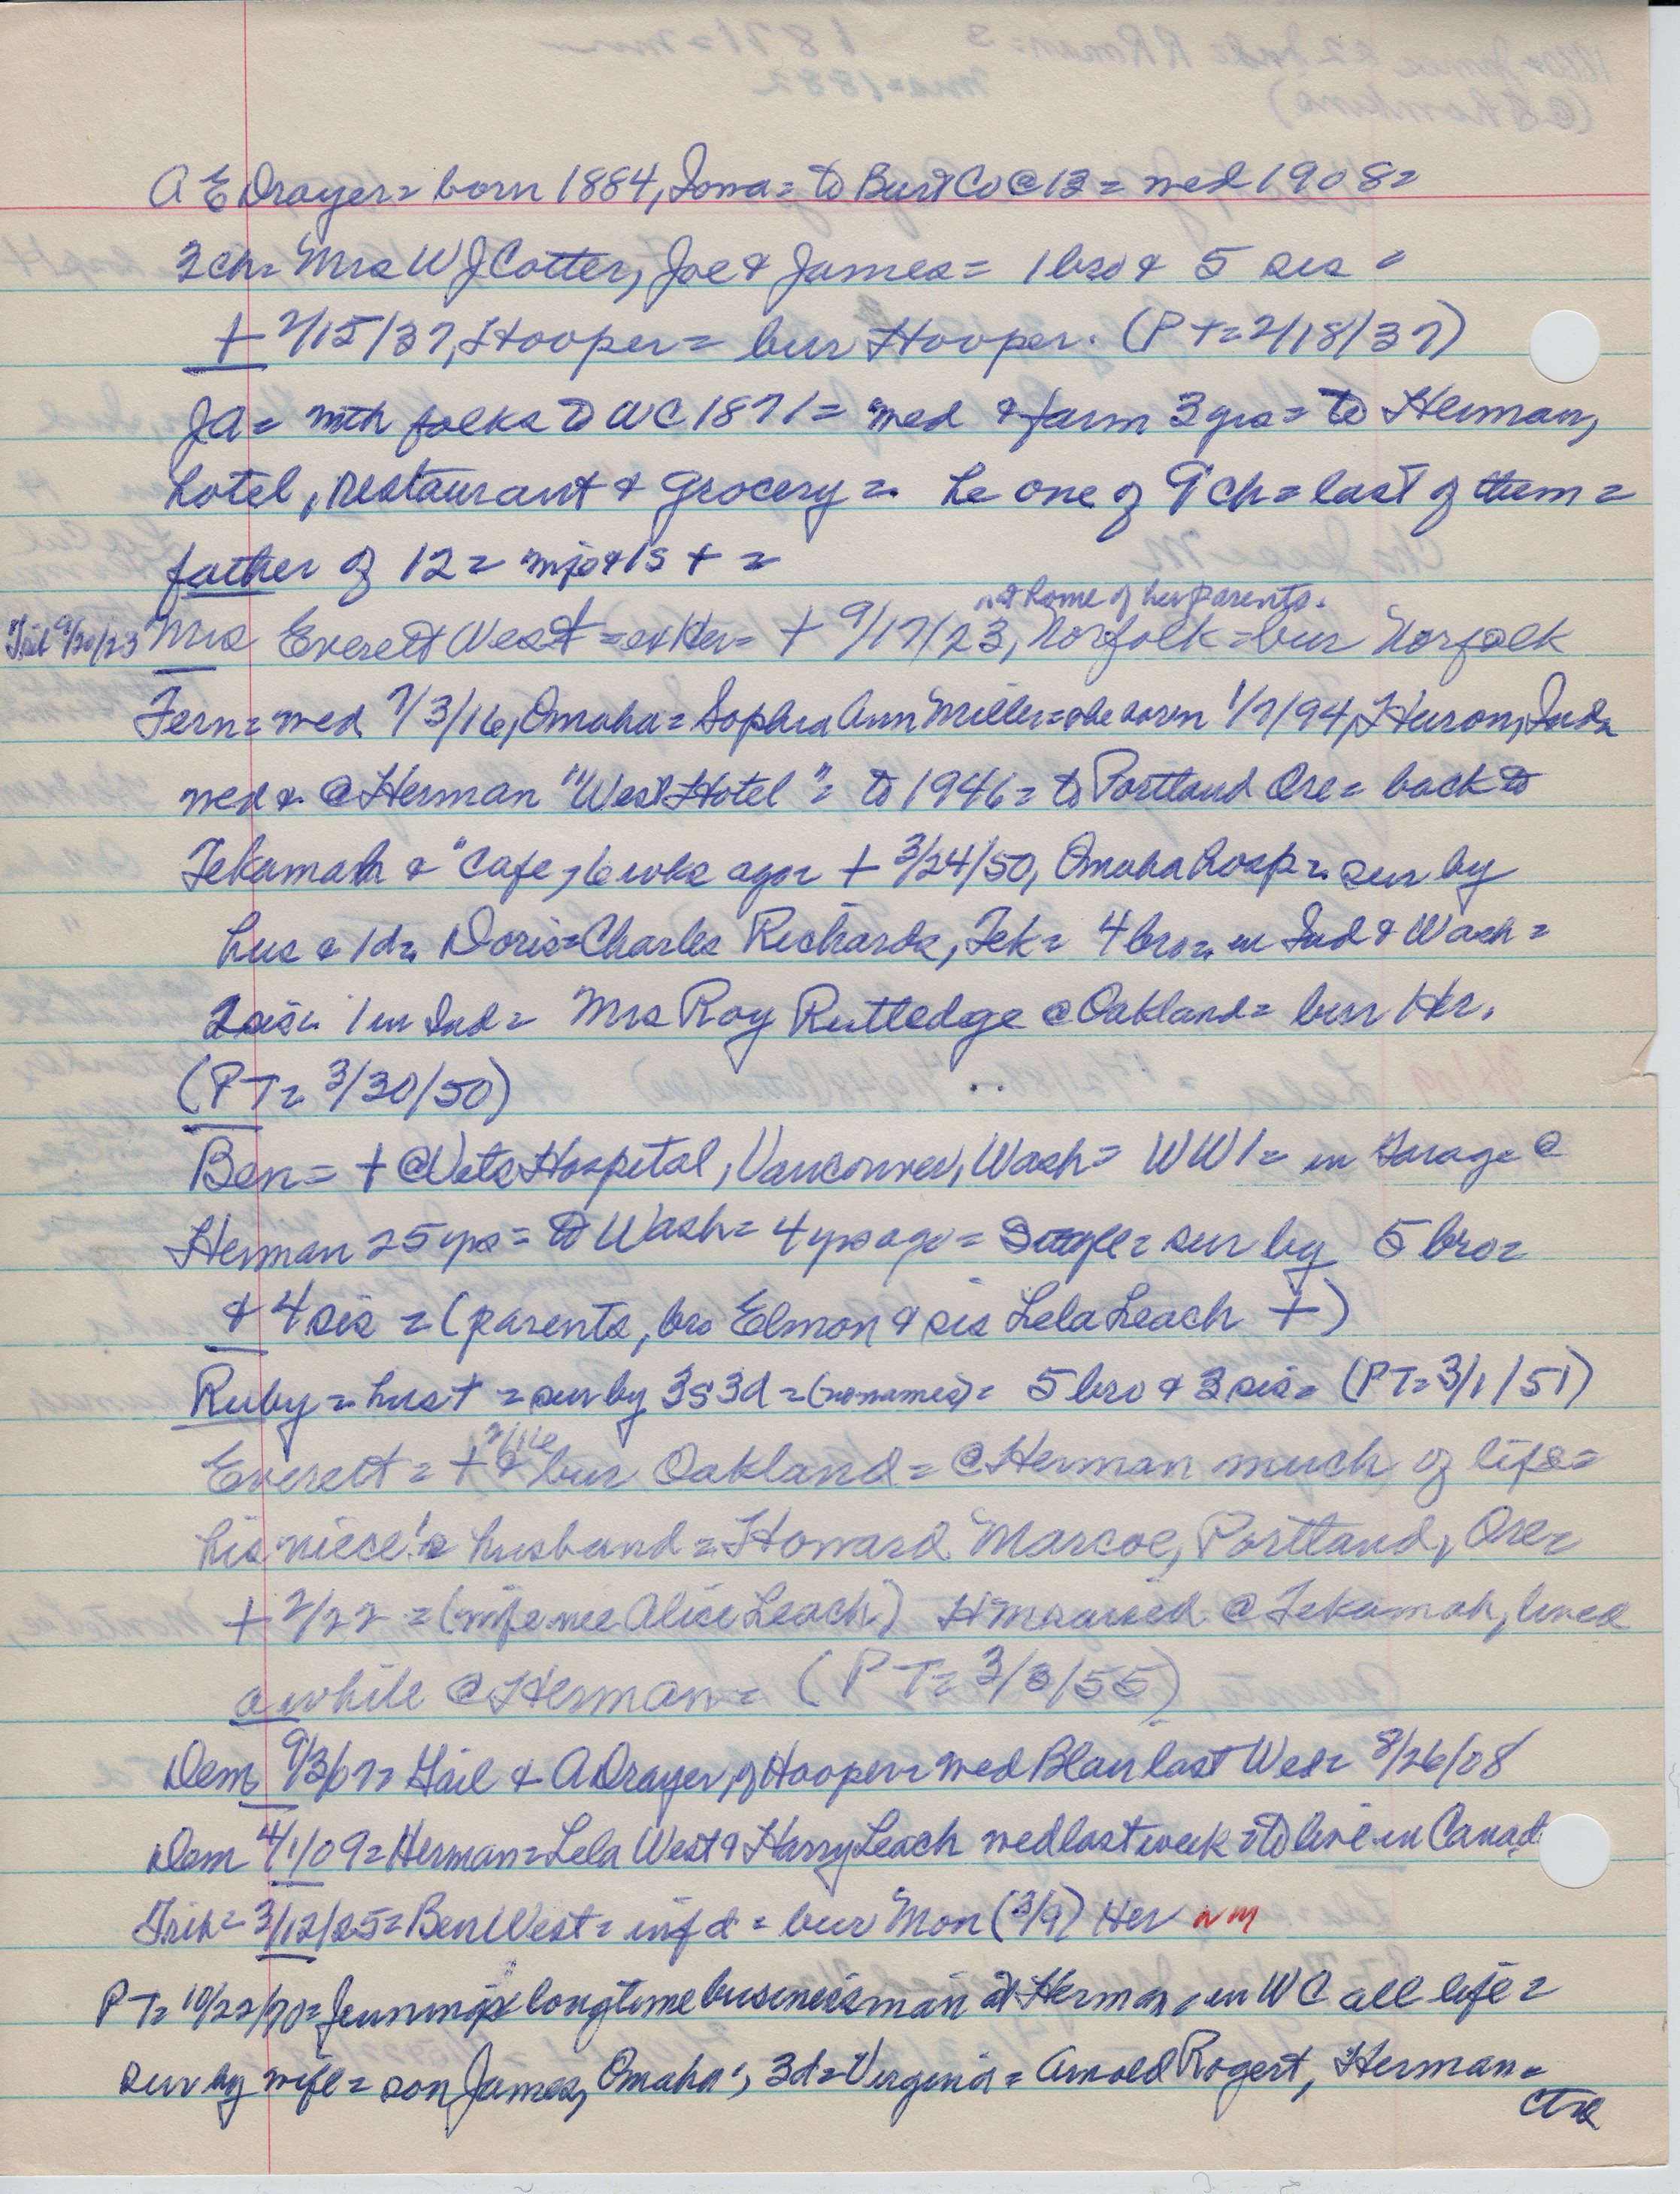 A E Drayer = born 1884, Iowa = to Burt Co @ 12 = wed 1908 =
3 ch = Mrs W J Cotter, Joe & James = 1 bro & 5 sis =
+ 2/15/37, Hooper = bur Hooper. (PT = 2/18/37)
JA = with folks to WC 1871 = wed & farm 3 yrs = to Herman,
hotel, restaurant & grocery = he one of 9 ch = last of them =
father of 12 = wife & 1s + =
at home of her parents.
Trib 9/20/23 Mrs Everett West = ex Her = + 9/17/23, Norfolk = bur Norfolk
Fern = wed 7/3/16, Omaha = Sophia Ann Miller = she born 1/7/94, Huron, Ind =
wed & @ Herman "West Hotel" = to 1946 = to Portland Ore = back to
Tekamah & "Cafe, 6 wks ago = + 3/24/50, Omaha hosp = sur by
hus & 1d = Doris = Charles Richards, Tek = 4 bro = in Ind & Wash =
2 sis = 1 in Ind = Mrs Roy Rutledge @ Oakland = bur Her.
(PT = 3/30/50)
Ben = + @ Vets Hospital, Vancouver, Wash = WW1 = in Garage @
Herman 25 yrs = to Wash = 4 yrs ago = Single = sur by 5 bro =
& 4 sis = (parents, bro Elmon & sis Lela Leach +)
Ruby = hus + = sur by 3s 3d = (no names) = 5 bro & 3 sis = (PT = 3/1/51)
2/16
Everett = + & bur Oakland = @ Herman much of life =
his niece's husband = Howard Marcoe, Portland, Ore =
+ 2/22 = (wife nee Alice Leach) H married @ Tekamah, lived
awhile @ Herman = (PT = 3/3/55)
Dem 9/3/07 = Gail & A Drayer, of Hooper = wed Blair last Wed = 8/26/08
Dem 4/1/09 = Herman = Lela West & Harry Leach wed last week = to live in Canad
Trib = 3/12/25 = Ben West = inf d = bur Mon (3/9) Her N M
PT = 10/22/70 = Jennings longtime businessman at Herman, in WC all life =
sur by wife = son James, Omaha; 3d = Virginia = Arnold Rogert, Herman =
ctd